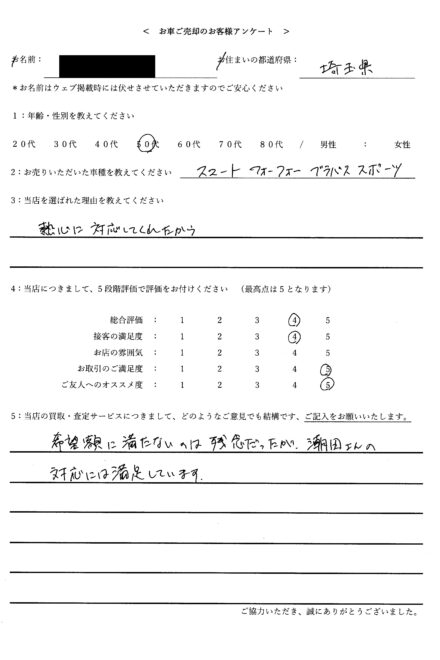 ＜ お車ご売却のお客様アンケート ＞
お名前： お住まいの都道府県： 埼玉県
＊お名前はウェブ掲載時には伏せさせていただきますのでご安心ください
1：年齢・性別を教えてください
20代 30代 40代 50代 60代 70代 80代 / 男性 ： 女性
2：お売りいただいた車種を教えてください スマート フォーフォー ブラバス スポーツ
3：当店を選ばれた理由を教えてください
熱心に対応してくれたから
4：当店につきまして、5段階評価で評価をお付けください （最高点は5となります）
総合評価 ： 1 2 3 4 5
接客の満足度 ： 1 2 3 4 5
お店の雰囲気 ： 1 2 3 4 5
お取引のご満足度 ： 1 2 3 4 5
ご友人へのオススメ度 ： 1 2 3 4 5
5：当店の買取・査定サービスにつきまして、どのようなご意見でも結構です、ご記入をお願いいたします。
希望額に満たないのは残念だったが、潮田さんの
対応には満足しています。
ご協力いただき、誠にありがとうございました。